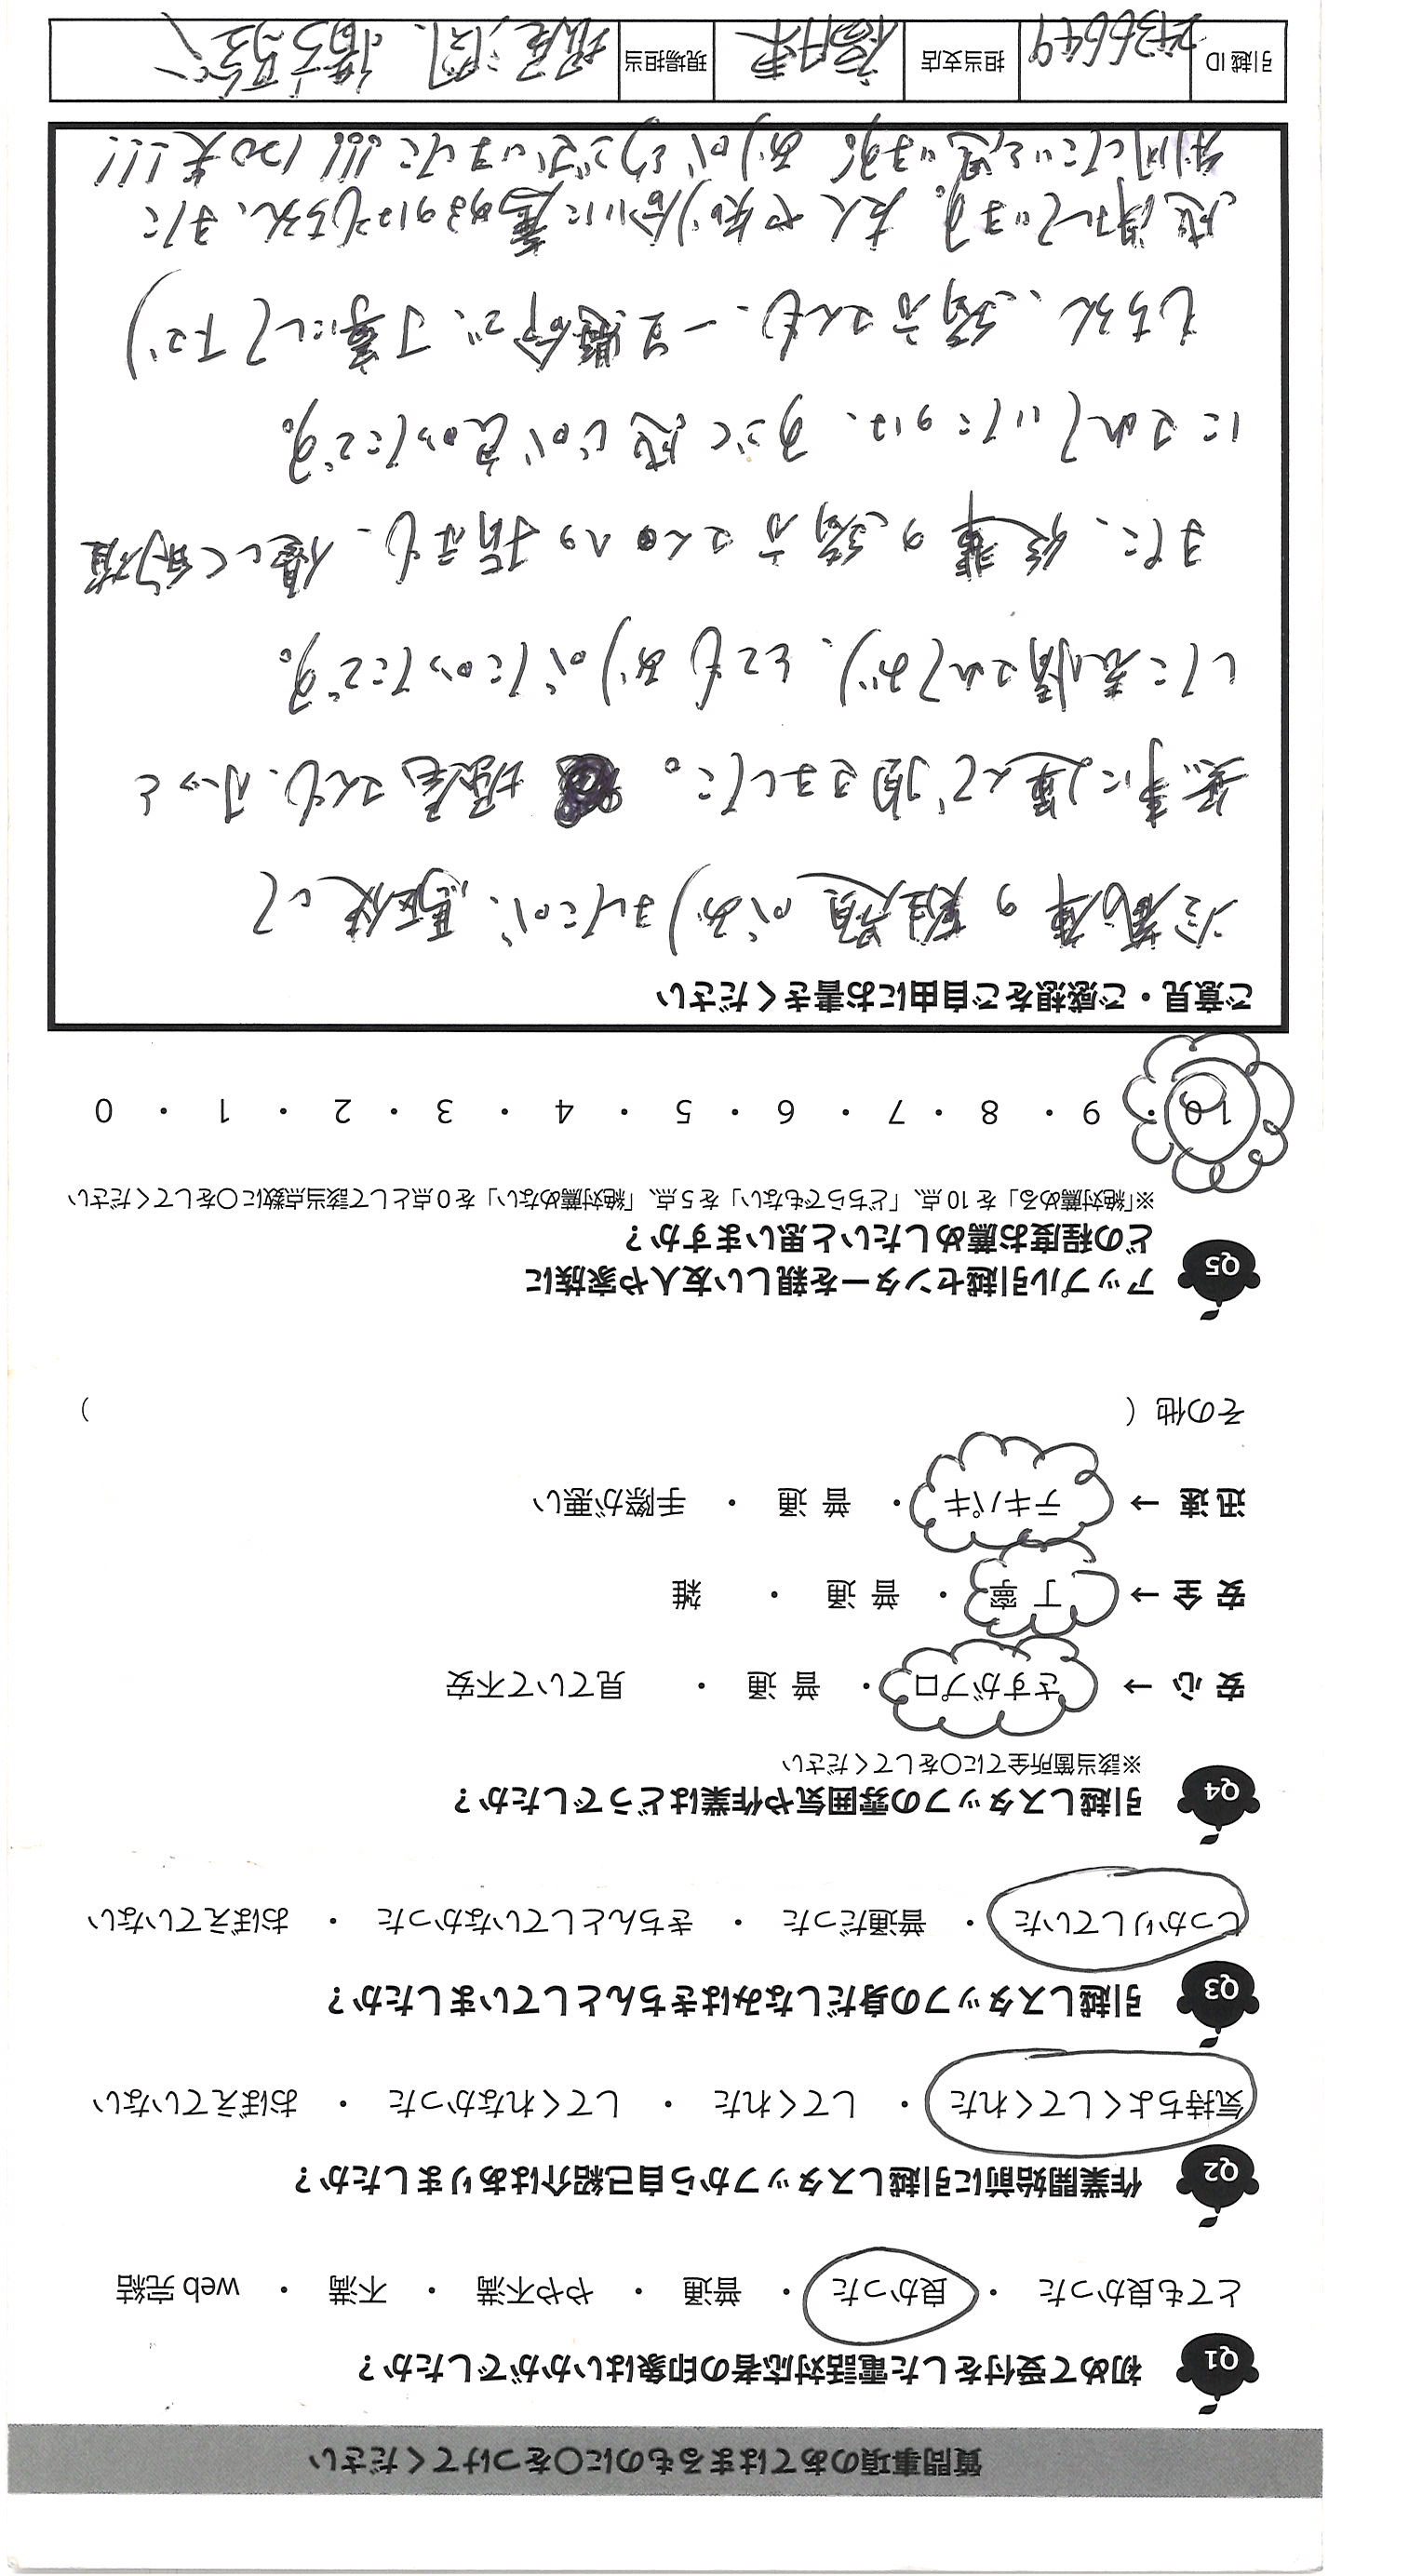 質問事項のあてはまるものに○をつけてください
Q1 初めて受付をした電話対応者の印象はいかがでしたか？
とても良かった ・ 良かった ・ 普通 ・ やや不満 ・ 不満 ・ web 完結
Q2 作業開始前に引越しスタッフから自己紹介はありましたか？
気持ちよくしてくれた ・ してくれた ・ してくれなかった ・ おぼえていない
Q3 引越しスタッフの身だしなみはきちんとしていましたか？
しっかりしていた ・ 普通だった ・ きちんとしていなかった ・ おぼえていない
Q4 引越しスタッフの雰囲気や作業はどうでしたか？
※該当箇所全てに○をしてください
安 心 → さすがプロ ・ 普 通 ・ 見ていて不安
安 全 → 丁 寧 ・ 普 通 ・ 雑
迅 速 → テキパキ ・ 普 通 ・ 手際が悪い
その他（ ）
Q5 アップル引越センターを親しい友人や家族に
どの程度お薦めしたいと思いますか？
※「絶対薦める」を 10 点、「どちらでもない」を 5 点、「絶対薦めない」を 0 点として該当点数に○をしてください
10 ・ 9 ・ 8 ・ 7 ・ 6 ・ 5 ・ 4 ・ 3 ・ 2 ・ 1 ・ 0
ご意見・ご感想をご自由にお書きください
冷蔵庫の難題がありましたが、駆使して
無事に運んで頂きました。 堀尾さんも、ホッと
した表情されており、とてもありがたかったです。
また、後輩の緒方さんへの指示も、優しく的確
にされていたのは、すごく感じが良かったです。
もちろん、緒方さんも、一生懸命で、丁寧にして下さり
感謝しています。友人や知り合いに薦めるのはもちろん、また
利用したいと思います。ありがとうございました!!!
引越 ID 2436649 担当支店 現場担当 堀尾 緒方